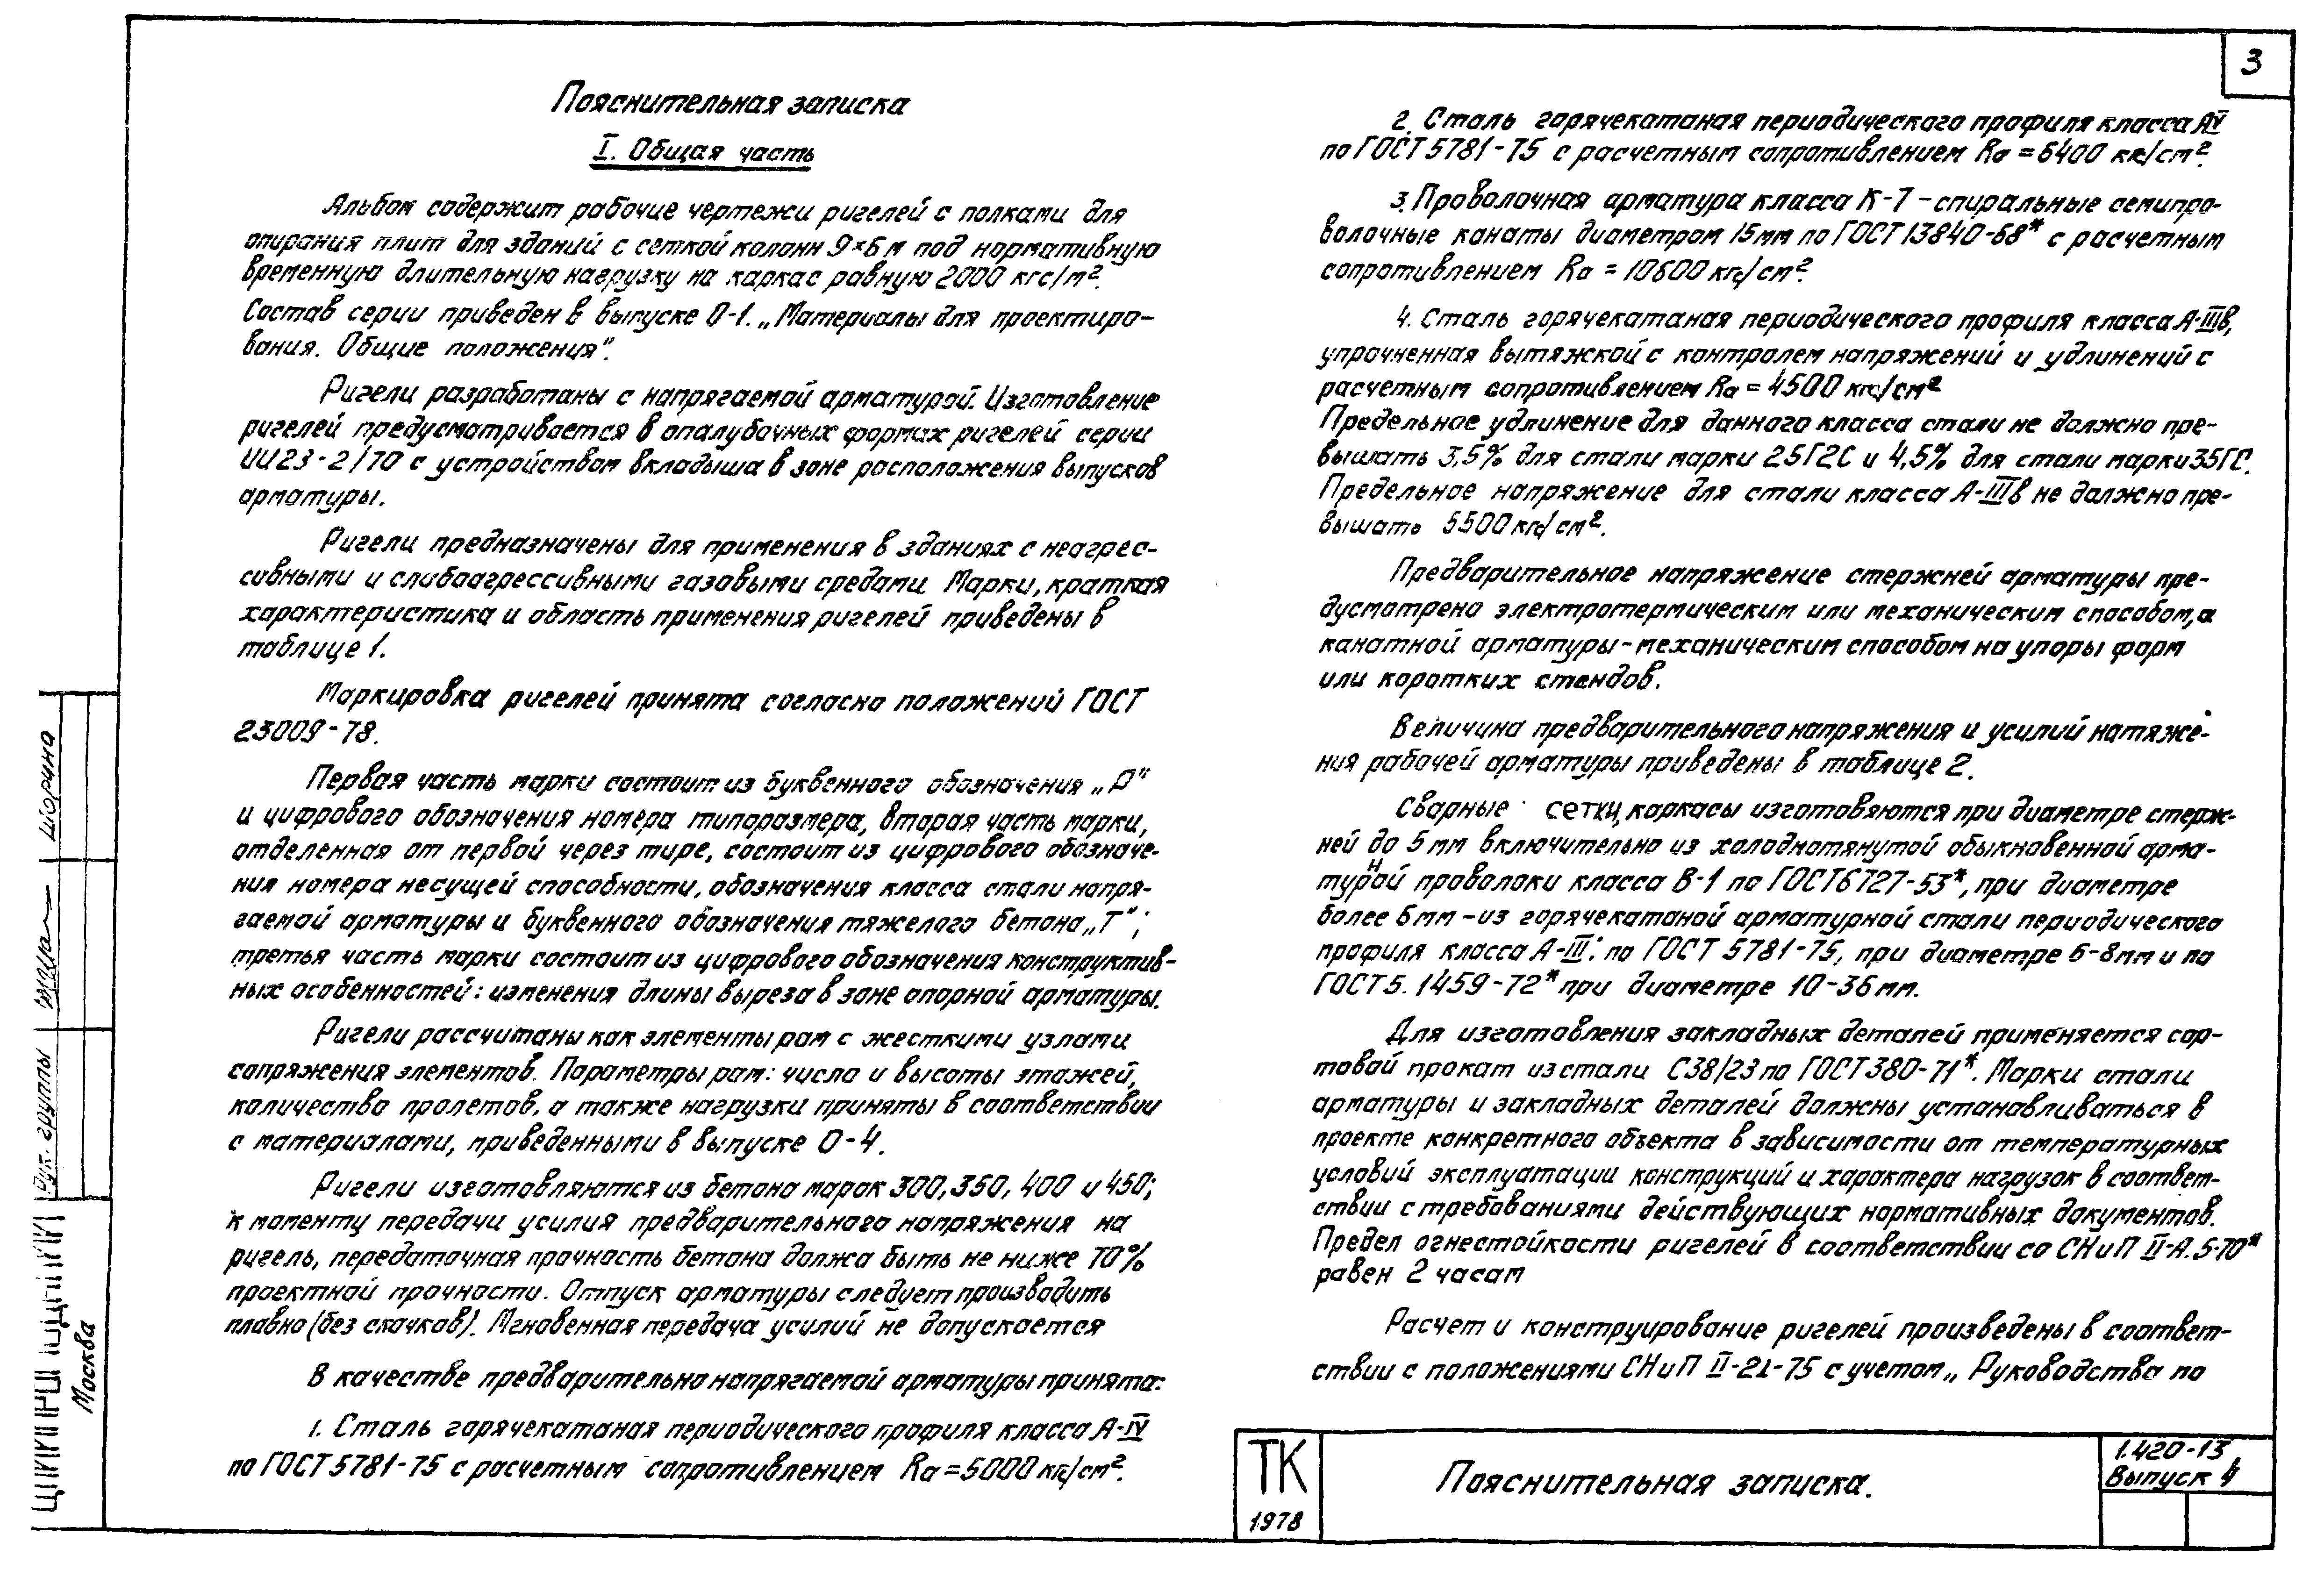 3
Пояснительная записка
I. Общая часть
Альбом содержит рабочие чертежи ригелей с полками для
опирания плит для зданий с сеткой колонн 9×6 м под нормативную
временную длительную нагрузку на каркас равную 2000 кгс/м².
Состав серии приведен в выпуске 0-1. „Материалы для проектиро-
вания. Общие положения".
Ригели разработаны с напрягаемой арматурой. Изготовление
ригелей предусматривается в опалубочных формах ригелей серии
ИИ23-2/70 с устройством вкладыша в зоне расположения выпусков
арматуры.
Ригели предназначены для применения в зданиях с неагрес-
сивными и слабоагрессивными газовыми средами. Марки, краткая
характеристика и область применения ригелей приведены в
таблице 1.
Маркировка ригелей принята согласно положений ГОСТ
23009-78.
Первая часть марки состоит из буквенного обозначения „Р"
и цифрового обозначения номера типоразмера, вторая часть марки,
отделенная от первой через тире, состоит из цифрового обозначе-
ния номера несущей способности, обозначения класса стали напря-
гаемой арматуры и буквенного обозначения тяжелого бетона „Т";
третья часть марки состоит из цифрового обозначения конструктив-
ных особенностей: изменения длины выреза в зоне опорной арматуры.
Ригели рассчитаны как элементы рам с жесткими узлами
сопряжения элементов. Параметры рам: число и высоты этажей,
количество пролетов, а также нагрузки приняты в соответствии
с материалами, приведенными в выпуске 0-4.
Ригели изготовляются из бетона марок 300, 350, 400 и 450;
к моменту передачи усилия предварительного напряжения на
ригель, передаточная прочность бетона должа быть не ниже 70%
проектной прочности. Отпуск арматуры следует производить
плавно (без скачков). Мгновенная передача усилий не допускается
В качестве предварительно напрягаемой арматуры принята:
1. Сталь горячекатаная периодического профиля класса А-IV
по ГОСТ 5781-75 с расчетным сопротивлением Rа = 5000 кгс/см².
2. Сталь горячекатаная периодического профиля класса АV
по ГОСТ 5781-75 с расчетным сопротивлением Rа = 6400 кгс/см².
3. Проволочная арматура класса К-7 - спиральные семипро-
волочные канаты диаметром 15мм по ГОСТ 13840-68* с расчетным
сопротивлением Rа = 10600 кгс/см².
4. Сталь горячекатаная периодического профиля класса А-IIIв,
упрочненная вытяжкой с контролем напряжений и удлинений с
расчетным сопротивлением Rа = 4500 кгс/см²
Предельное удлинение для данного класса стали не должно пре-
вышать 3,5% для стали марки 25Г2С и 4,5% для стали марки 35ГС.
Предельное напряжение для стали класса А-IIIв не должно пре-
вышать 5500 кгс/см².
Предварительное напряжение стержней арматуры пре-
дусмотрено электротермическим или механическим способом, а
канатной арматуры - механическим способом на упоры форм
или коротких стендов.
Величина предварительного напряжения и усилий натяже-
ния рабочей арматуры приведены в таблице 2.
Сварные сетки, каркасы изготовяются при диаметре стерж-
ней до 5 мм включительно из холоднотянутой обыкновенной арма-
турной проволоки класса В-1 по ГОСТ 6727-53*, при диаметре
более 6 мм - из горячекатаной арматурной стали периодического
профиля класса А-III: по ГОСТ 5781-75, при диаметре 6-8мм и по
ГОСТ 5. 1459-72* при диаметре 10-36 мм.
Для изготовления закладных деталей применяется сор-
товой прокат из стали С38/23 по ГОСТ 380-71*. Марки стали
арматуры и закладных деталей должны устанавливаться в
проекте конкретного объекта в зависимости от температурных
условий эксплуатации конструкций и характера нагрузок в соответ-
ствии с требованиями действующих нормативных документов.
Предел огнестойкости ригелей в соответствии со СНиП II-А.5-70*
равен 2 часам
Расчет и конструирование ригелей произведены в соответ-
ствии с положениями СНиП II-21-75 с учетом „Руководства по
ТК
1978
Пояснительная записка.
1.420-13
Выпуск 4
Рук. группы
Шорина
Москва